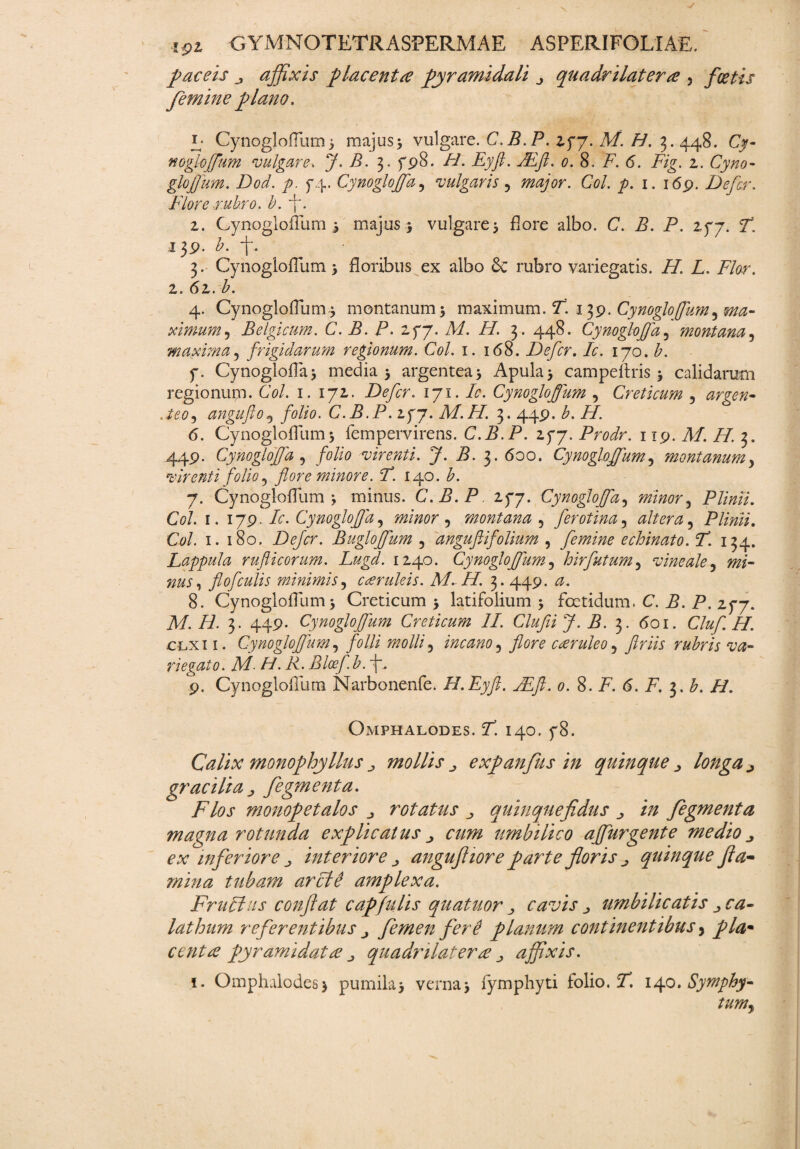 192 GYMNOTETRASPERMAE ASPERIFOLIAE.
paceis, affixis placentæ pyramidali, quadrilateræ, fœtis
ſemine plano.
1. Cynogloſſum; majus; vulgare. C.B.P. 257. M. H. 3. 448. Cy-
nogloſſum vulgare. J. B. 3. 598. H. Eyſt. Æſt. o. 8. F. 6. Fig. 2. Cyno-
gloſſum. Dod. p. 54. Cynogloſſa, vulgaris, major. Col. p. 1. 169. Deſcr.
Flore rubro. b. †.
2. Cynogloſſum; majus; vulgare; flore albo. C. B. P. 257. T.
139. b. †.
3. Cynogloſſum; floribus ex albo & rubro variegatis. H. L. Flor.
2. 62. b.
4. Cynogloſſum; montanum; maximum. T. 139. Cynogloſſum, ma-
ximum, Belgicum. C. B. P. 257. M. H. 3. 448. Cynogloſſa, montana,
maxima, frigidarum regionum. Col. 1. 168. Deſcr. Ic. 170. b.
5. Cynogloſſa; media; argentea; Apula; campeſtris; calidarum
regionum. Col. 1. 172. Deſcr. 171. Ic. Cynogloſſum, Creticum, argen-
teo, anguſto, folio. C.B.P. 257. M.H. 3. 449. b. H.
6. Cynogloſſum; ſempervirens. C.B.P. 257. Prodr. 119. M. H. 3.
449. Cynogloſſa, folio virenti. J. B. 3. 600. Cynogloſſum, montanum,
virenti folio, flore minore. T. 140. b.
7. Cynogloſſum; minus. C.B.P. 257. Cynogloſſa, minor, Plinii.
Col. 1. 179. Ic. Cynogloſſa, minor, montana, ſerotina, altera, Plinii.
Col. 1. 180. Deſcr. Bugloſſum, anguſtifolium, ſemine echinato. T. 134.
Lappula ruſticorum. Lugd. 1240. Cynogloſſum, hirſutum, vineale, mi-
nus, floſculis minimis, cæruleis. M. H. 3. 449. a.
8. Cynogloſſum; Creticum; latifolium; fœtidum. C. B. P. 257.
M. H. 3. 449. Cynogloſſum Creticum II. Cluſii J. B. 3. 601. Cluſ. H.
CLXII. Cynogloſſum, folli molli, incano, flore cæruleo, ſtriis rubris va-
riegato. M. H. R. Blœſ. b. †.
9. Cynogloſſum Narbonenſe. H.Eyſt. Æſt. o. 8. F. 6. F. 3. b. H.
OMPHALODES. T. 140. 58.
Calix monophyllus, mollis, expanſus in quinque, longa,
gracilia, ſegmenta.
Flos monopetalos, rotatus, quinquefidus, in ſegmenta
magna rotunda explicatus, cum umbilico aſſurgente medio,
ex inferiore, interiore, anguſtiore parte floris, quinque ſta-
mina tubam arctè amplexa.
Fructus conſtat capſulis quatuor, cavis, umbilicatis, ca-
lathum referentibus, ſemen ferè planum continentibus, pla-
centæ pyramidatæ, quadrilateræ, affixis.
1. Omphalodes; pumila; verna; ſymphyti folio. T. 140. Symphy-
tum,